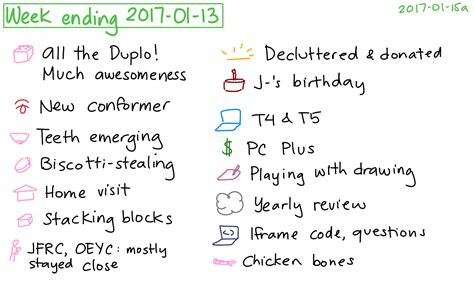 Week ending 2017-01-13
2017-01-15a
all the Duplo!
Much awesomeness
New conformer
Teeth emerging
Biscotti-stealing
Home visit
Stacking blocks
JFRC, OEYC: mostly
stayed close
Decluttered & donated
J-'s birthday
T4 & T5
$ PC Plus
Playing with drawing
Yearly review
Iframe code, questions
Chicken bones